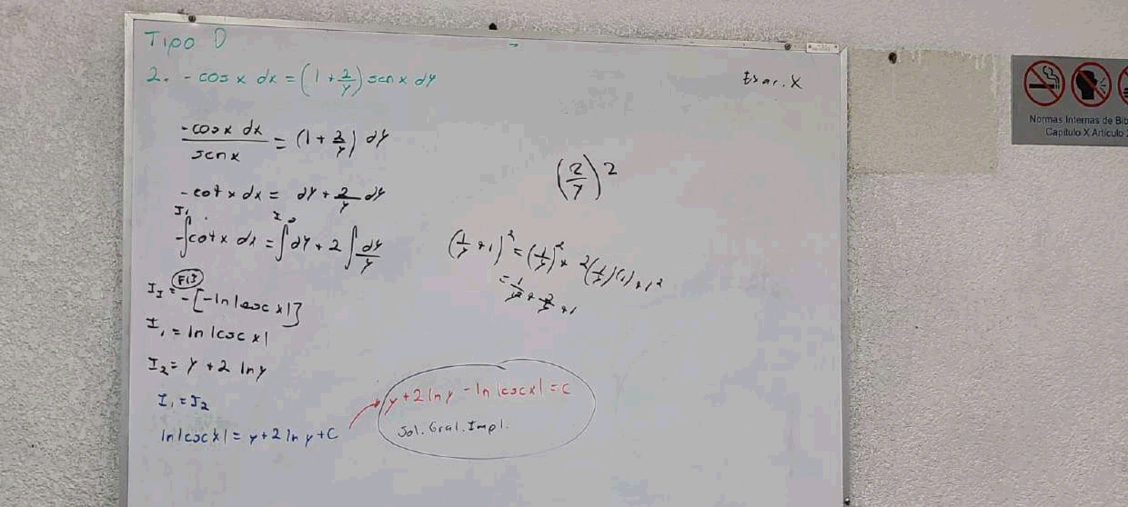 Tipo D
2. - cos x dx = (1 + 2/y) sen x dy
Esar. X
-cos x dx / sen x = (1 + 2/y) dy
(2/y)^2
-cot x dx = dy + 2/y dy
I1
-∫cot x dx = ∫dy + 2∫dy/y
(1/y + 1)^2 = (1/y)^2 + 2(1/y)(1) + 1^2
F13
I1 = -[-ln|csc x|]
I1 = ln|csc x|
I2 = y + 2 ln y
I1 = I2
ln|csc x| = y + 2 ln y + C
y + 2 ln y - ln|csc x| = C
Sol. Gral. Impl.
Normas Internas de Bib
Capítulo X Artículo